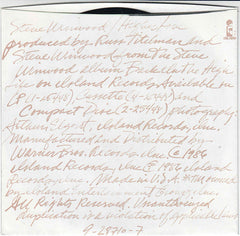 Steve Winwood /
produced by Russ Titelman and
Steve Winwood / from the Steve
Winwood album Back in the High
Life on Island Records. Available on
LP (1-25448) Cassette (4-25448) and
Compact Disc (2-25448) photography:
Arthur Elgort, Island Records, Inc.
Manufactured and Distributed by
Warner Bros. Records, Inc. © 1986
Island Records, Inc. 1986 Island
Records, Inc. Made in U.S.A.
by Island
All Rights Reserved. Unauthorized
duplication is a violation of applicable laws
9-28710-7